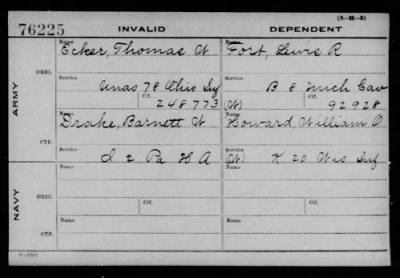 (3-H-3)
76225 INVALID DEPENDENT
Name Name
Ecker, Thomas W Fort, Lewis R
ORIG.
Service Service
Unas 78 Ohio Inf B 8 Mich Cav
Ctf. Ctf.
248773 (W) 92928
ARMY
Name Name
Drake, Barnett W Howard William O
CTF.
Service Service
I 2 Pa H A (W) K 20 Wis Inf
Name Ctf. Name Ctf.
ORIG.
Service Service
NAVY
Name Name
CTF.
Service Service